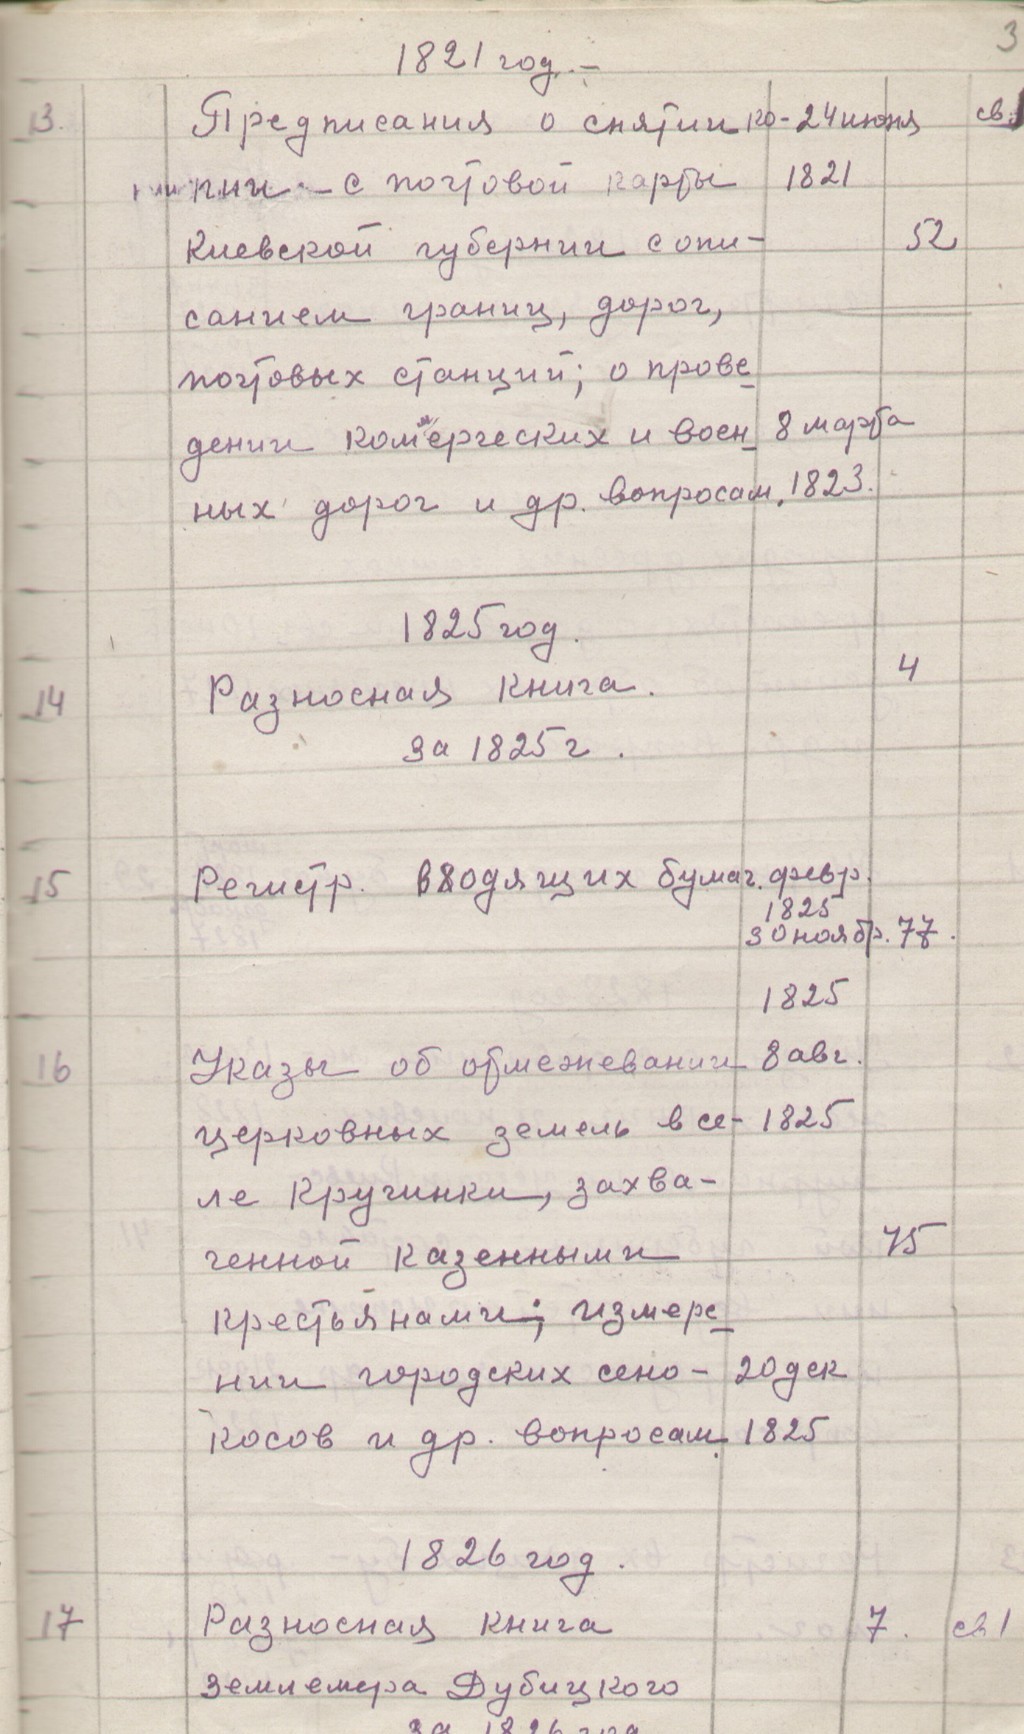 3
1821 год. –
13. Предписания о снятии ко- 24 июня св. 1
пии – с почтовой карты 1821
Киевской губернии с опи- 52
санием границ, дорог,
почтовых станций; о прове
дении комерческих и воен 8 марта
ных дорог и др. вопросам. 1823.
1825 год.
14 Разносная книга. 4
за 1825 г.
15 Регистр. входящих бумаг. февр.
1825
30 ноябр. 77.
1825
16 Указы об обмежевании 8 авг.
церковных земель в се- 1825
ле Кручинки, захва-
ченной казенными 75
крестьянами; измере
нии городских сено- 20 дек
косов и др. вопросам. 1825
1826 год.
17 Разносная книга 7. св 1
землемера Дубицкого
за 1826 год